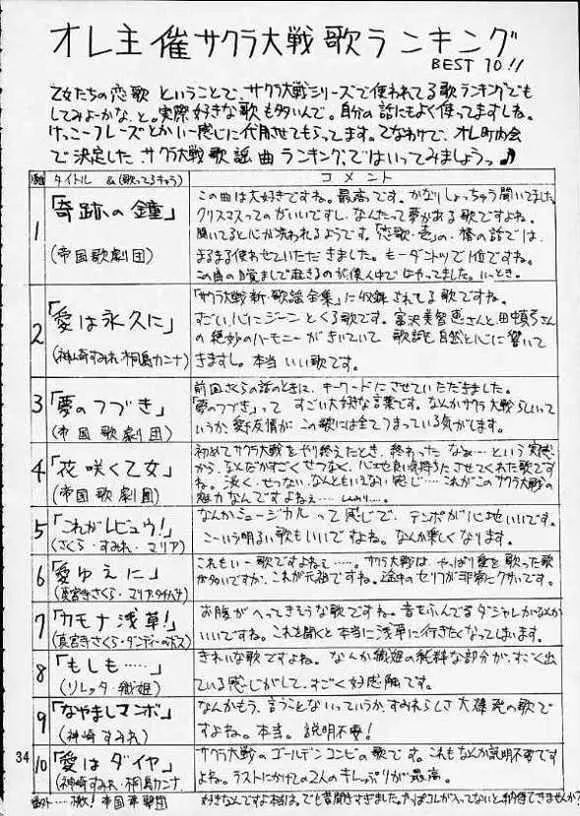 オレ主催サクラ大戦歌ランキング
BEST 10!!
乙女たちの恋歌ということで、サクラ大戦シリーズで使われてる歌ランキングでも
してみよーかな、と。実際好きな歌も多いんで。自分の話にもよく使ってますしね。
けっこーフレーズとかいー感じに代用させてもらってます。てなわけで、オレ町内会
で決定した サクラ大戦歌謡曲ランキング、ではいってみましょうっ♪
タイトル &(歌ってるキャラ)
コメント
1
「奇跡の鐘」
(帝国歌劇団)
この曲は大好きですね。最高です。かなりしょっちゅう聞いてました。
クリスマスってのがいいですし、なんたって夢がある歌ですよね。
聞いてると心が洗われるようです。「恋歌・壱」の、椿の話では、
まるまる使わせていただきました。もーダントツで1位ですね。
この曲の目覚ましで起きるのが
はやってました。いっとき。
2
「愛は永久に」
(神崎すみれ・桐島カンナ)
「サクラ大戦 新・歌謡全集」に収録されてる歌ですね。
すごい、心にジーンとくる歌です。富沢美智恵さんと田中真弓さん
の絶妙のハーモニーがきいていて 歌詞も自然と心に響いて
きますし。本当いい歌です。
3
「夢のつづき」
(帝国歌劇団)
前回さくらの話のときに、キーワードにさせていただきました。
「夢のつづき」って すごい大好きな言葉です。なんかサクラ大戦らしいって
いうか、愛と友情が この歌には全てつまっている気がします。
4
「花咲く乙女」
(帝国歌劇団)
初めてサクラ大戦をやり終えたとき、終わった なぁ…という実感
から、なんだかすごくせつなく、心地良い気持ちにさせてくれた歌です
ね。淡く、せつない、なんともいえない感じ…これがこのサクラ大戦の
魅力なんですよねぇ…しみじみ…。
5
「これがレビュウ!」
(さくら・すみれ・マリア)
なんかミュージカルって感じで、テンポが心地いいです。
こーいう明るい歌もいいですよね。なんか楽しくなります。
6
「愛ゆえに」
(真宮寺さくら・マリア・タチバナ)
これもいー歌ですよねぇ……。サクラ大戦は、やっぱり愛を歌った歌
が多いですが、これが元祖ですね。途中のセリフが非常にクサいです。
7
「カモナ浅草!」
(真宮寺さくら・ダンディーのボス)
お腹がへってきそうな歌ですね。音をふんでるダジャレがなんか
いいですね。これを聞くと本当に浅草に行きたくなってしまいます。
8
「もしも……」
(ソレッタ・織姫)
きれいな歌ですよね。なんか織姫の純粋な部分が、すごく出
ている感じがして、すごく好感触です。
9
「なやましマンボ」
(神崎すみれ)
なんかもう、言うことないっていうか、すみれらしさ大爆発の歌で
すよね。本当。説明不要!
34
10
「愛はダイヤ」
(神崎すみれ・桐島カンナ)
サクラ大戦のゴールデンコンビの歌です。これもなんか説明不要です
よね。ラストにかけての2人のキレっぷりが最高。
番外…檄!帝国華撃団
好きなんですよ本当は。でも昔聞きすぎました。やっぱコレが入ってないと納得できませんか?